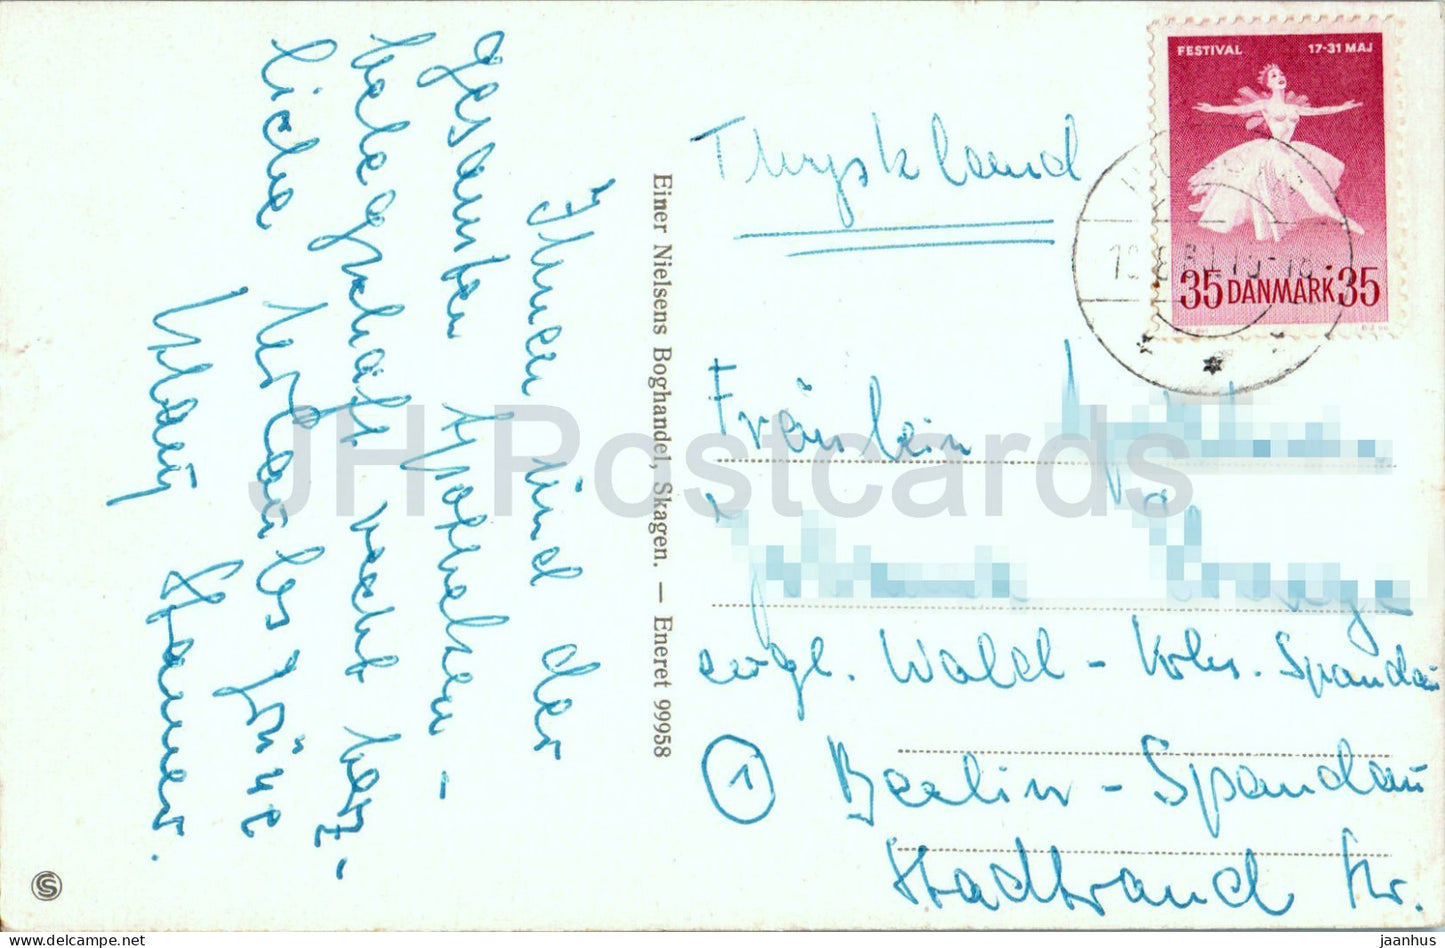 Ihnen und der
gesamten Apotheken-
belegschaft recht herz-
liche Urlaubsgrüße
Hans Sauer.
Einer Nielsens Boghandel, Skagen. — Eneret 99958
FESTIVAL 17-31 MAJ
35 DANMARK 35
Thyskland
Fräulein
Wald - Krhs. Spandau
① Berlin - Spandau
Stadtrand Str.
JH Postcards
jaanhus - www.delcampe.net